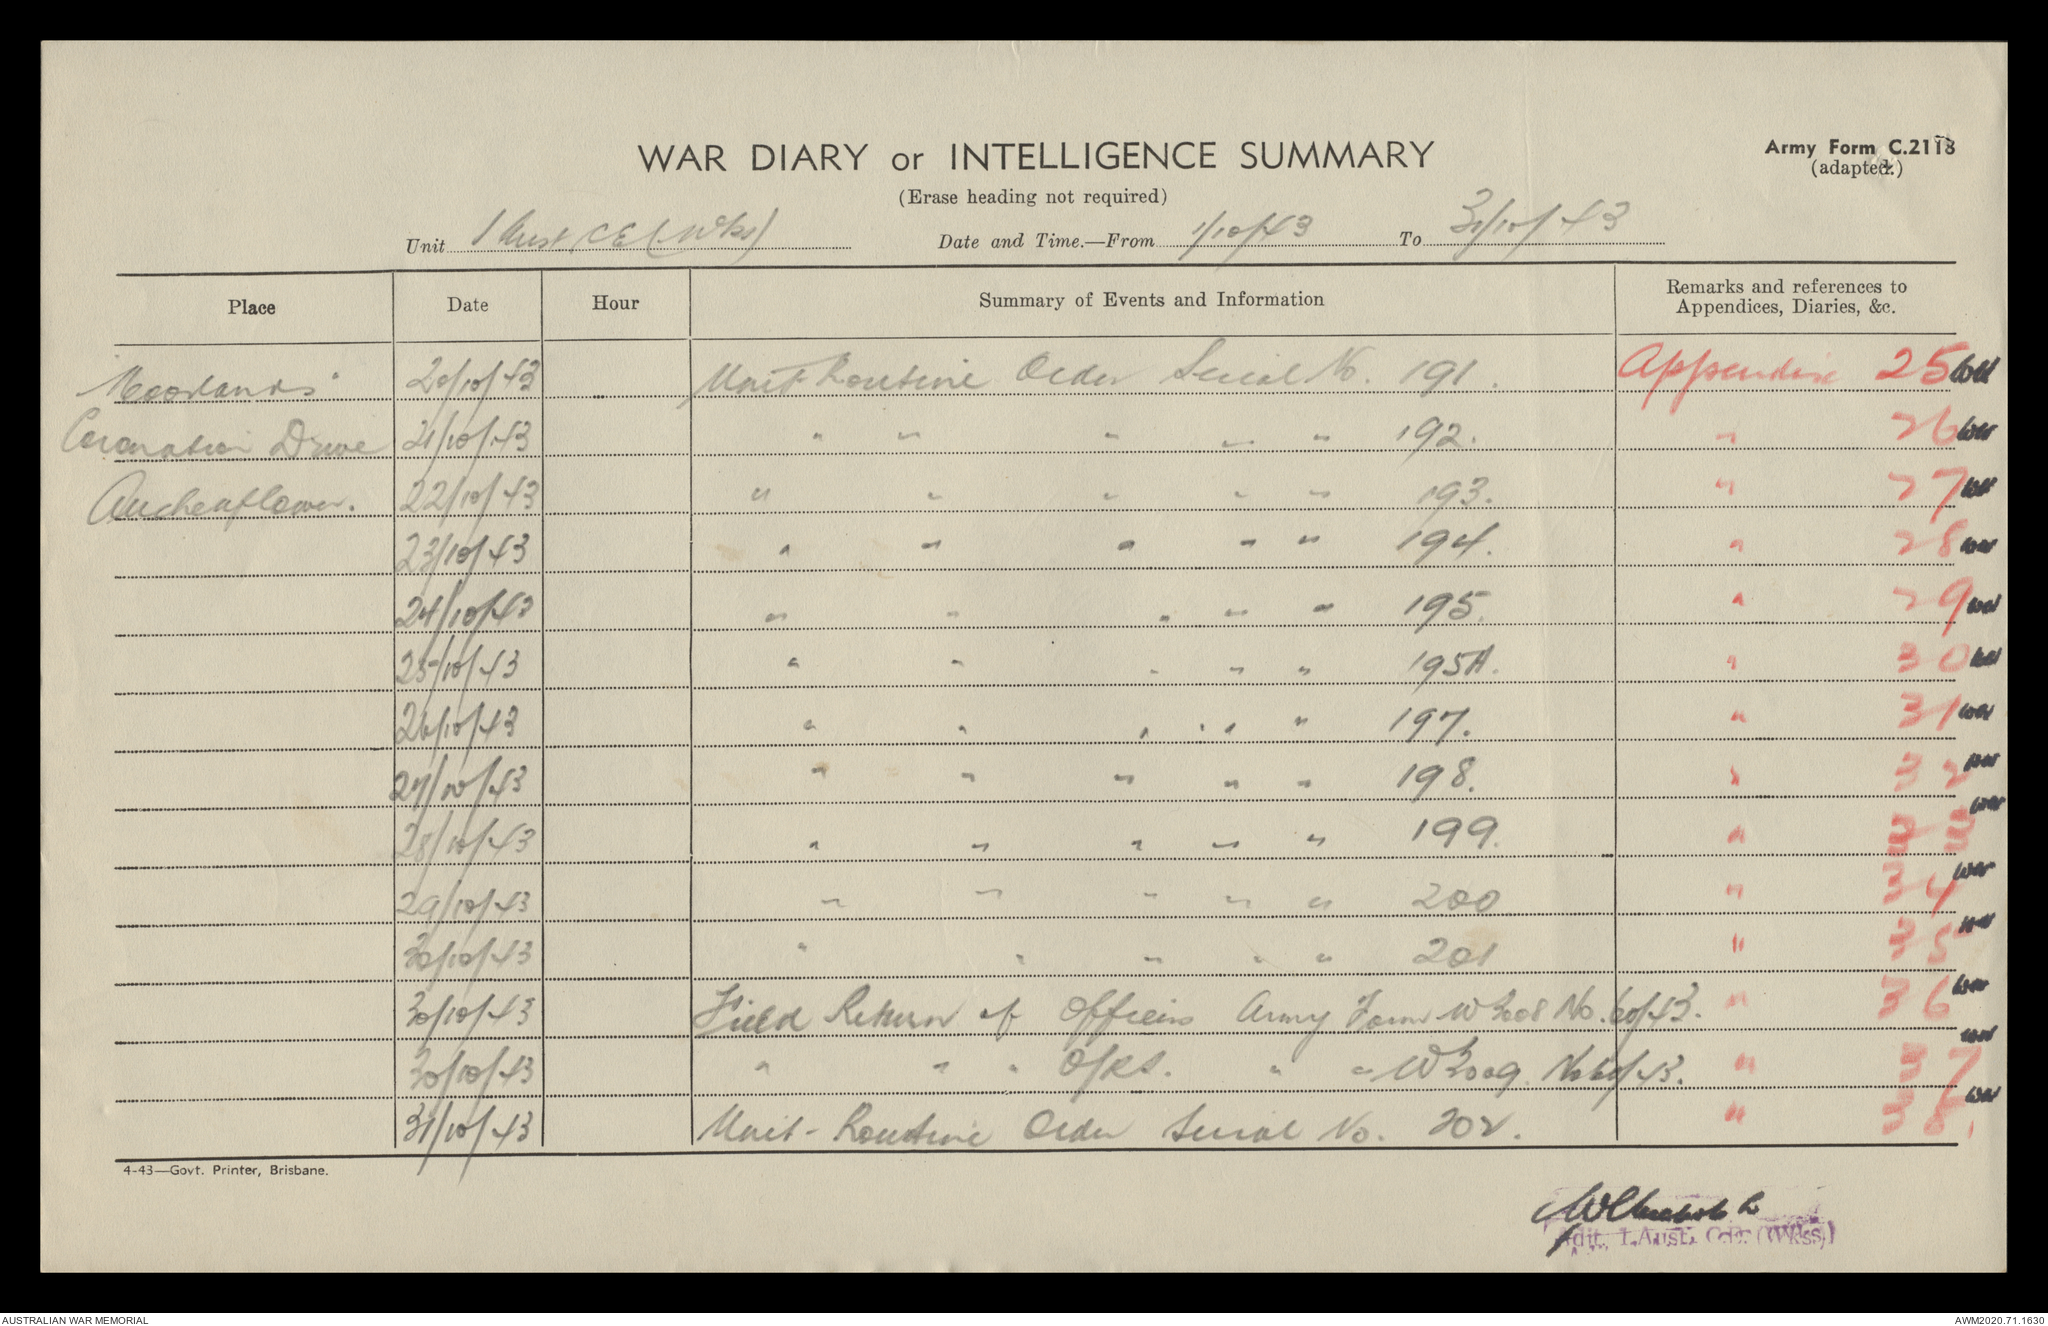 WAR DIARY or INTELLIGENCE SUMMARY
Army Form C.2118
(adapted.)
(Erase heading not required)
Unit 1 Aust CE (Wks) Date and Time.—From 1/10/43 To 31/10/43
Place Date Hour Summary of Events and Information Remarks and references to Appendices, Diaries, &c.
"Moorlands" 20/10/43 Unit Routine Order Serial No. 191. Appendix 25
Coronation Drive 21/10/43 " " " " " 192. " 26
Auchenflower. 22/10/43 " " " " " 193. " 27
23/10/43 " " " " " 194. " 28
24/10/43 " " " " " 195. " 29
25/10/43 " " " " " 195A. " 30
26/10/43 " " " " " 197. " 31
27/10/43 " " " " " 198. " 32
28/10/43 " " " " " 199. " 33
29/10/43 " " " " " 200 " 34
30/10/43 " " " " " 201 " 35
30/10/43 Field Return of Officers Army Form W3008 No. 60/43. " 36
30/10/43 " " " O/Rs. " " W3009. No 60/43. " 37
31/10/43 Unit Routine Order Serial No. 202. " 38.
4-43—Govt. Printer, Brisbane.
Adjt. 1 Aust. C.E. (Wks)
AUSTRALIAN WAR MEMORIAL
AWM2020.71.1630